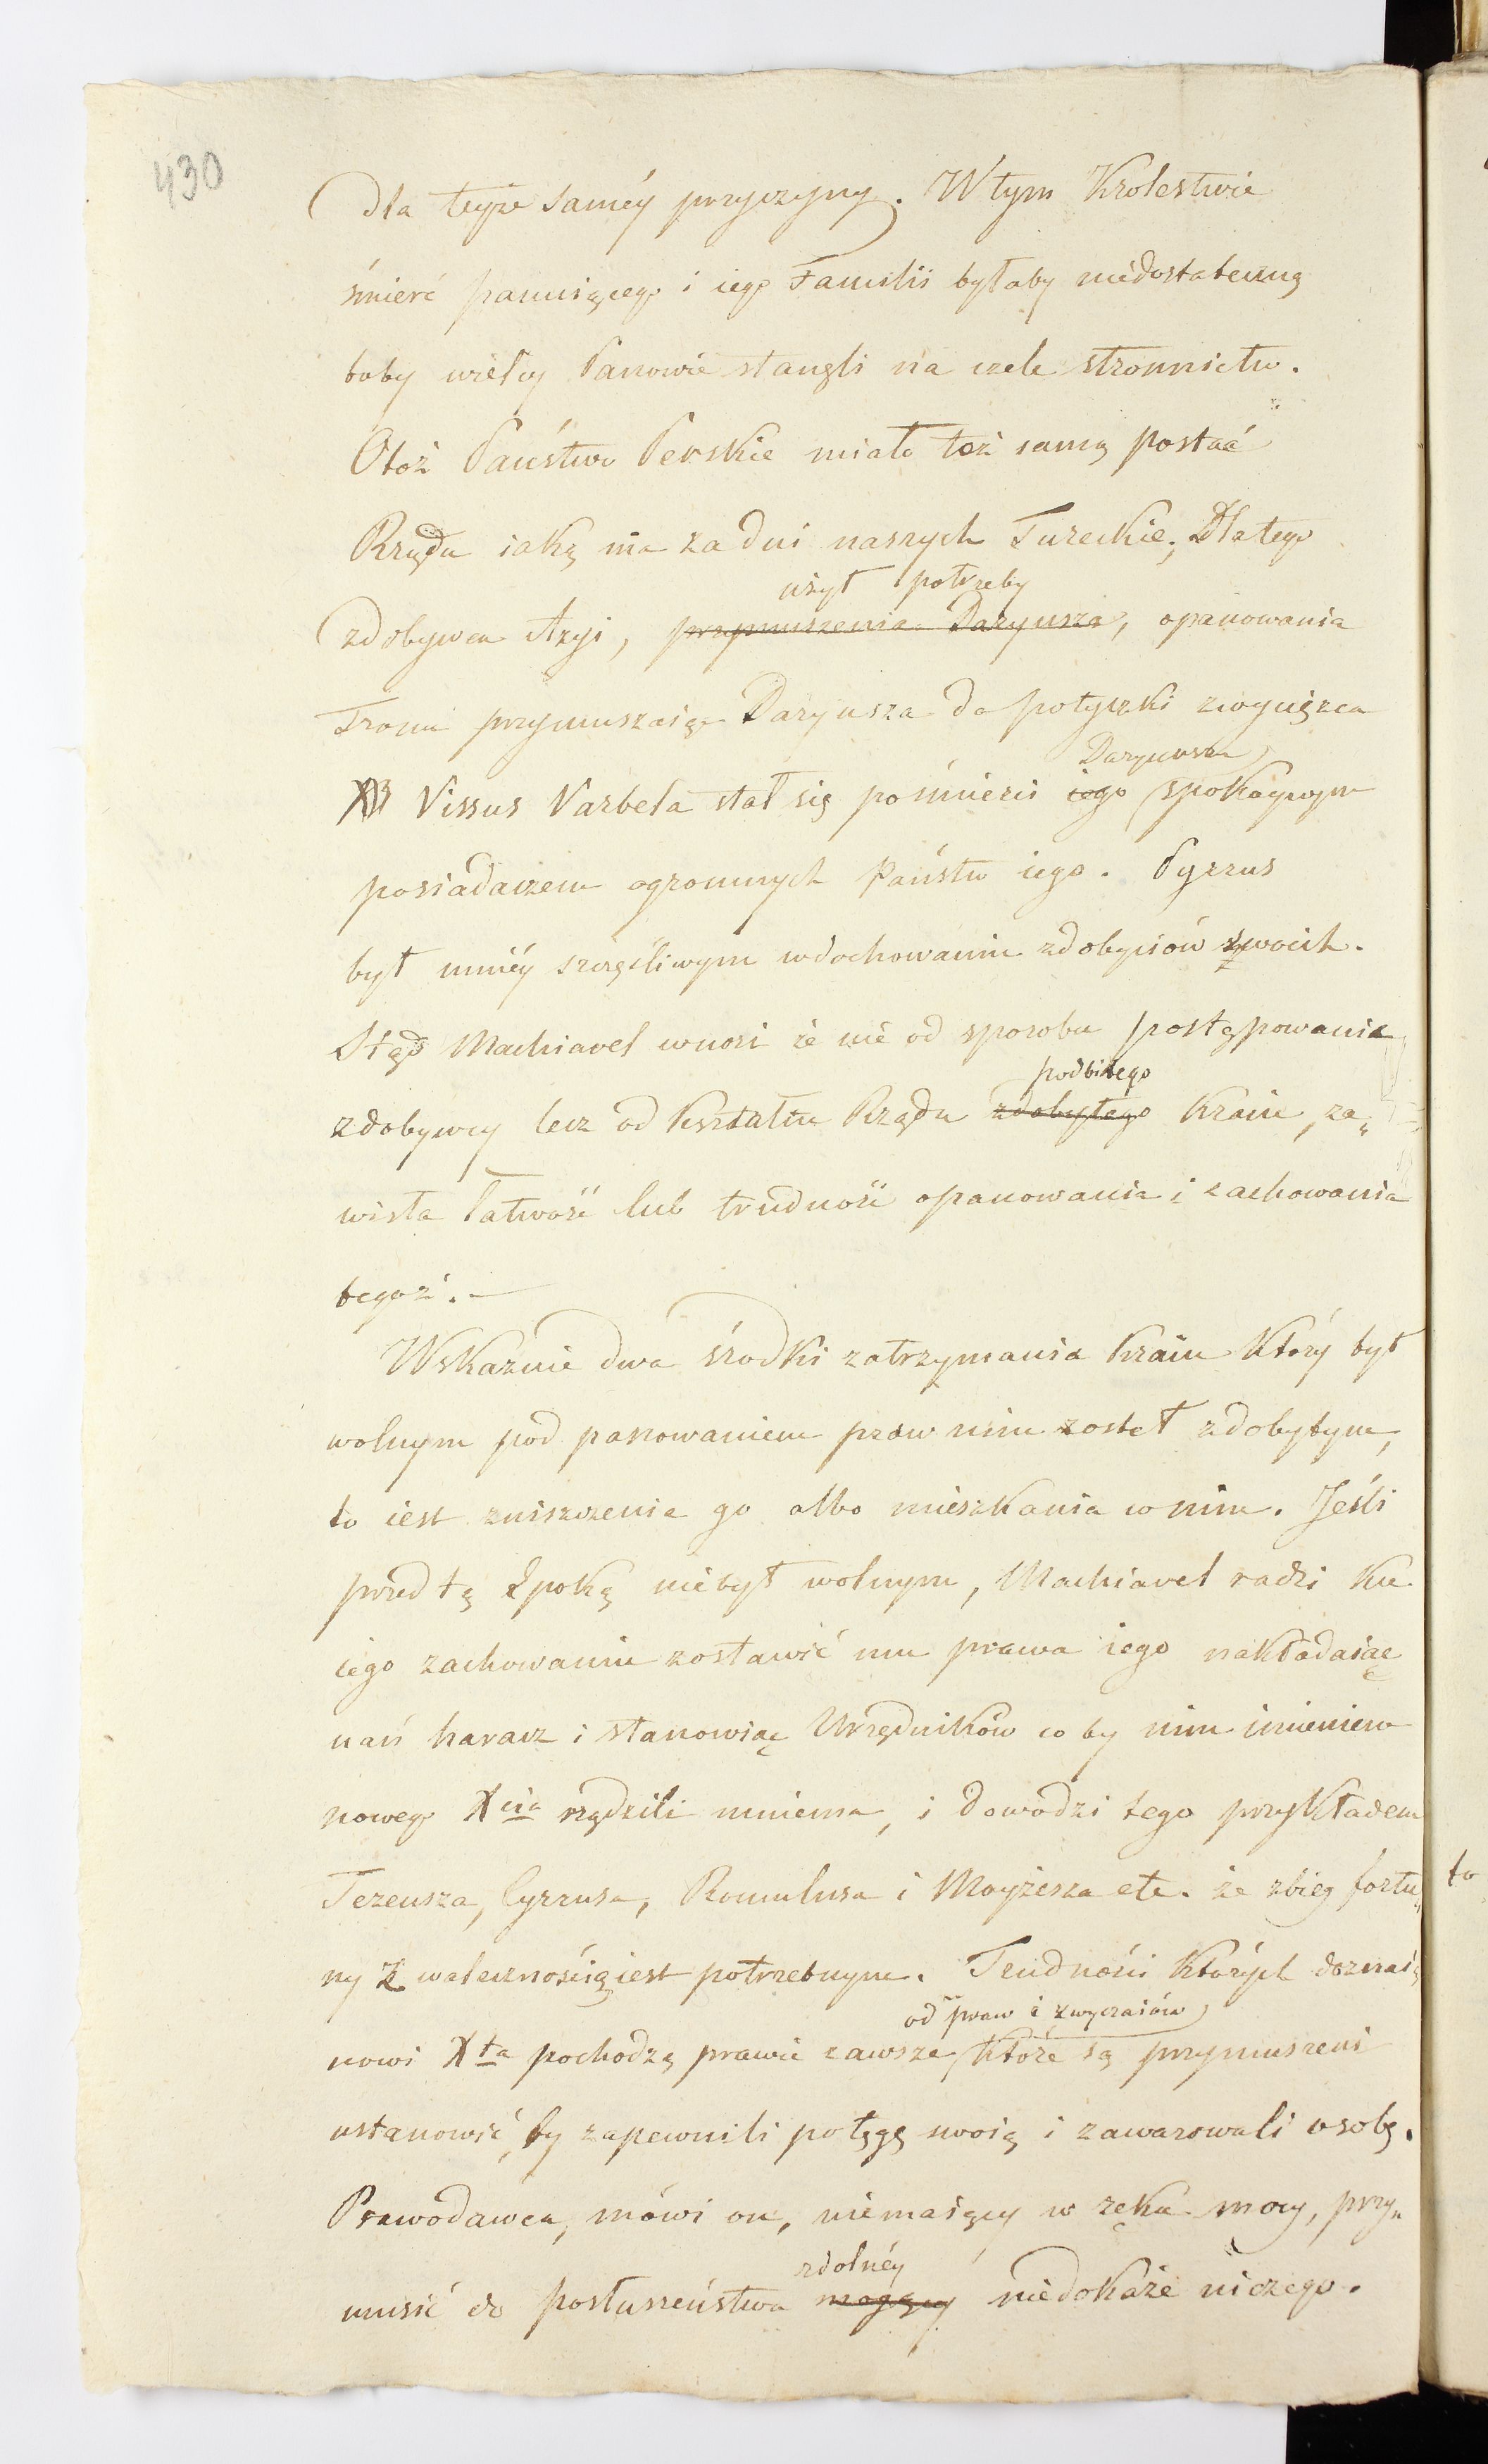 430
dla teyże saméy przyczyny. W tym Krolestwie
śmierć panuiącego i iego Familii byłaby niedostateczną
boby wielcy Panowie stanęli na czele stronnictw.
Otoż Państwo Perskie miało toż samą postać
Rządu iaką ma za dni naszych Tureckie; Dlatego
użył potrzeby
zdobywca Azyi, przymuszenia Daryusza, opanowania
Tronu przymuszaiąc Daryusza do potyczki zwycięzca
Daryusza
Vissus Varbela stał się pośmierci iego spokoynym
posiadaczem ogromnych Państw iego. Pyrrus
był mniéy szczęśliwym wdochowaniu zdobyciów swoich.
Stąd Machiavel wnosi że nie od sposobu postępowania
podbitego
zdobywcy lecz od Kształtu Rządu zdobytego Kraiu, za„
wisła łatwość lub trudność opanowania i zachowania
tegoż. —
Wskaźnie dwa środki zatrzymania Kraiu Który był
wolnym pod panowaniem praw nim został zdobytym,
to iest zniszczenia go albo mieszkania w nim. Jeśli
przed tą Epoką niebył wolnym, Machiavel radzi Ku
iego zachowaniu zostawić mu prawa iego nakładaiąc
nań haracz i stanowiąc Urzędników co by nim imieniem
nowego Xcia rządzili mniema, i dowodzi tego przykładem
Tezeusza, Cyrrusa, Romulusa i Moyżesza etc. że zbieg fortu„
ny z walecznością iest potrzebnym. Trudności Których doznaią
od praw i zwyczaiów
nowi Xta pochodzą prawie zawsze Które są przymuszeni
ustanowić, by zapewnili potęgę swoią i zawarowali osobę.
Prawodawca, mówi on, niemaiący w ręku mocy, przy„
zdolnéy
musić do posłuszeństwa mogący niedokaże niczego.
to